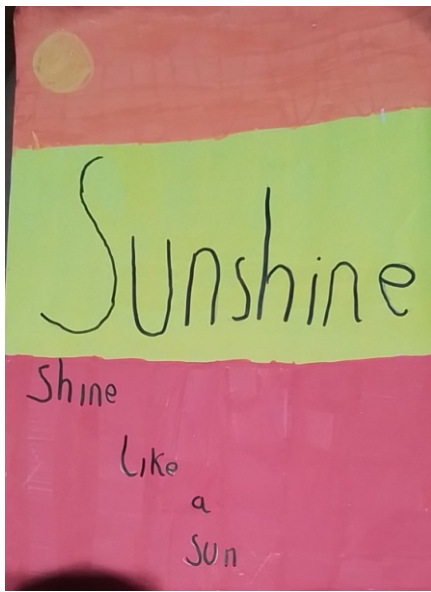 Sunshine
Shine
Like
a
sun